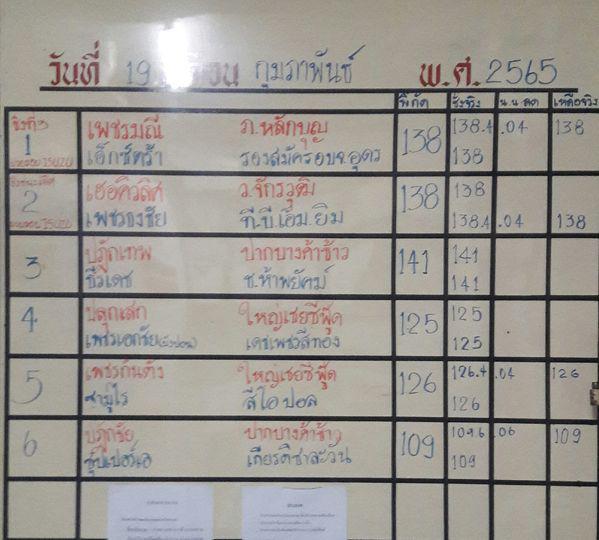 วันที่ 19 เดือน กุมภาพันธ์ พ.ศ. 2565
พิกัด ชั่งจริง น.น.ลด เหลือจริง
ชิงที่3
1 เพชรมณี ภ.หลักบุญ 138 138.4 .04 138
เอ็กซ์ตร้า รองสมัครอบจ.อุดร 138
2 เฮอคิวลิศ ว.จักรวุฒิ 138 138
เพชรธงชัย ที.บี.เอ็ม.ยิม 138.4 .04 138
3 ปฏักเทพ ปากบางค่าข้าว 141 141
ธีรเดช ช.ห้าพยัคฆ์ 141
4 ปลุกเสก ใหญ่เชยซีฟู๊ด 125 125
เพชรเอกชัย เดชเพชรสีทอง 125
5 เพชรกันตัง ใหญ่เชยซีฟู๊ด 126 126.4 .04 126
ซามูไร สีโอปอล 126
6 ปฏักชัย ปากบางค่าข้าว 109 109.6 .06 109
ซุปเปอร์เอ เกียรติชาละวัน 109